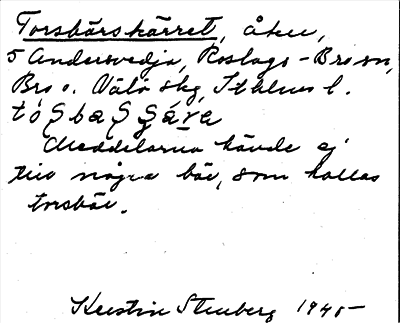 Torsbärskärret, åker,
5 Andersvedja, Roslags-Bro sn,
Bro o. Vätö skg, Sthlms l.
Meddelarna kände ej
till några bär, som kallas
torsbär.
Kerstin Stenberg 1945